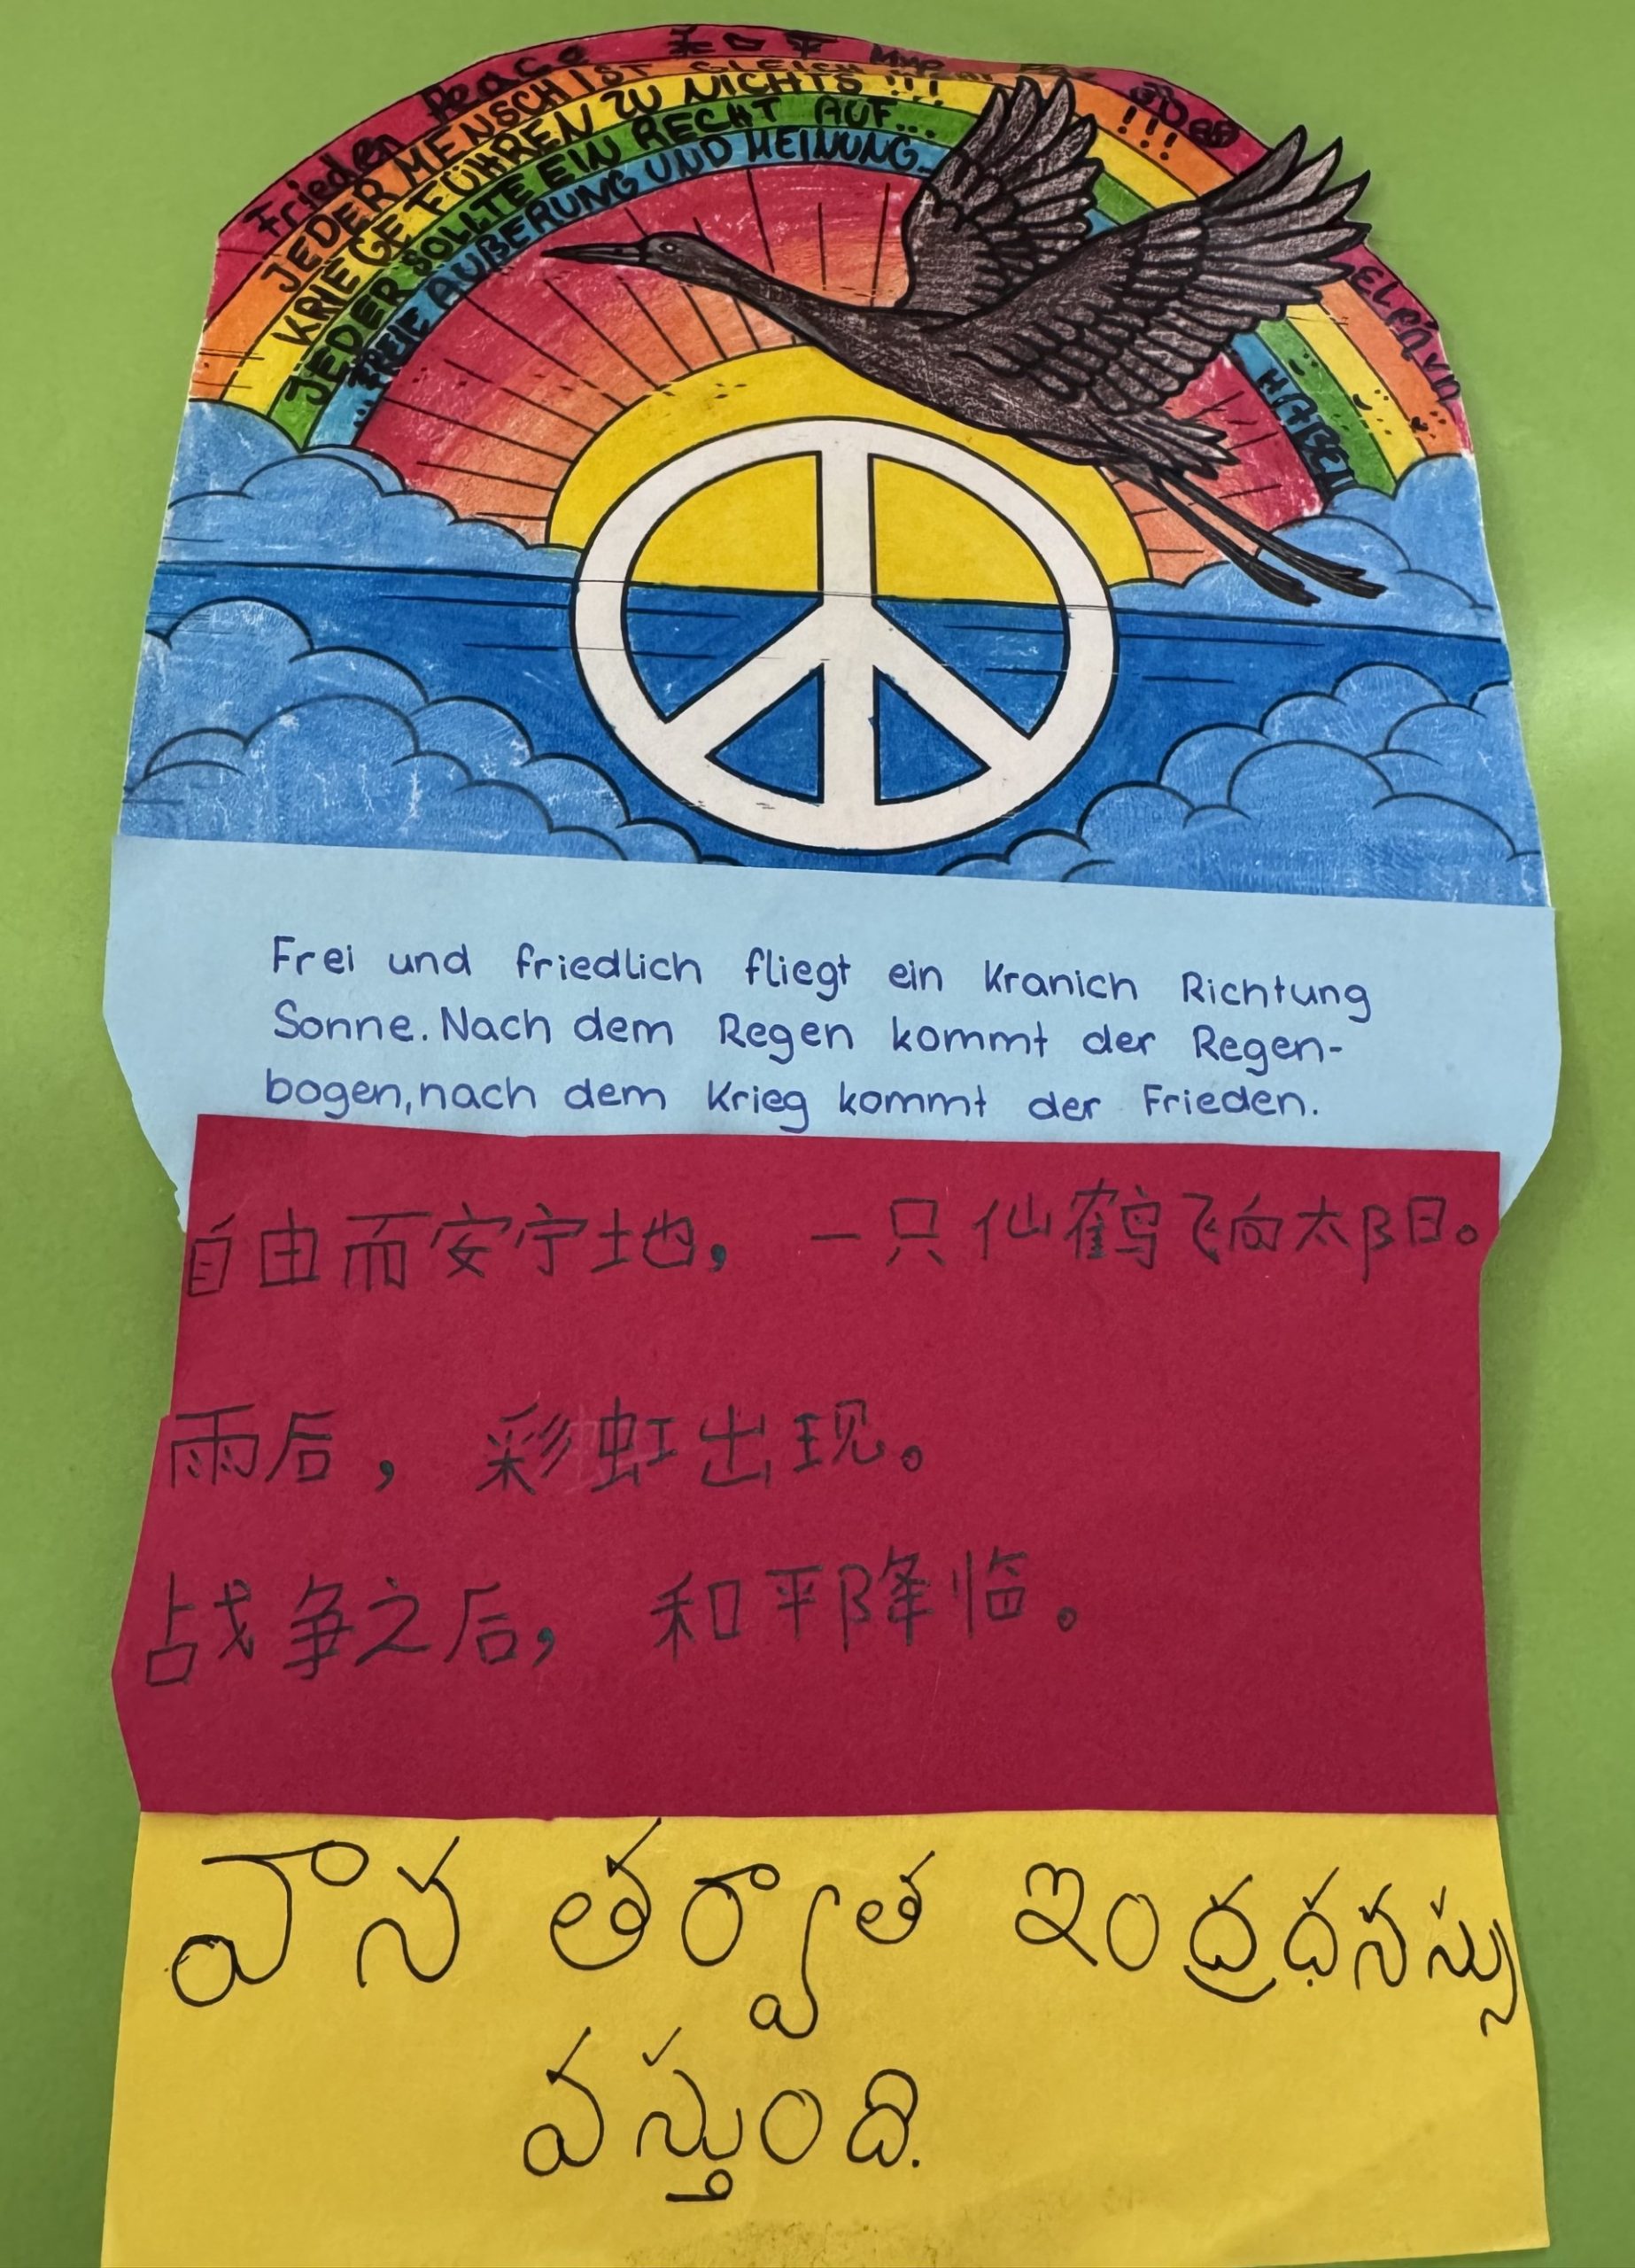 Frieden Peace 和平 Мир
JEDER MENSCH IST GLEICH !!!
KRIEGE FÜHREN ZU NICHTS !!!
JEDER SOLLTE EIN RECHT AUF...
...FREIE ÄUßERUNG UND MEINUNG...
HABEN
Frei und friedlich fliegt ein Kranich Richtung
Sonne. Nach dem Regen kommt der Regen-
bogen, nach dem Krieg kommt der Frieden.
自由而安宁地，一只仙鹤飞向太阳。
雨后，彩虹出现。
战争之后，和平降临。
వాన తర్వాత ఇంద్రధనస్సు
వస్తుంది.